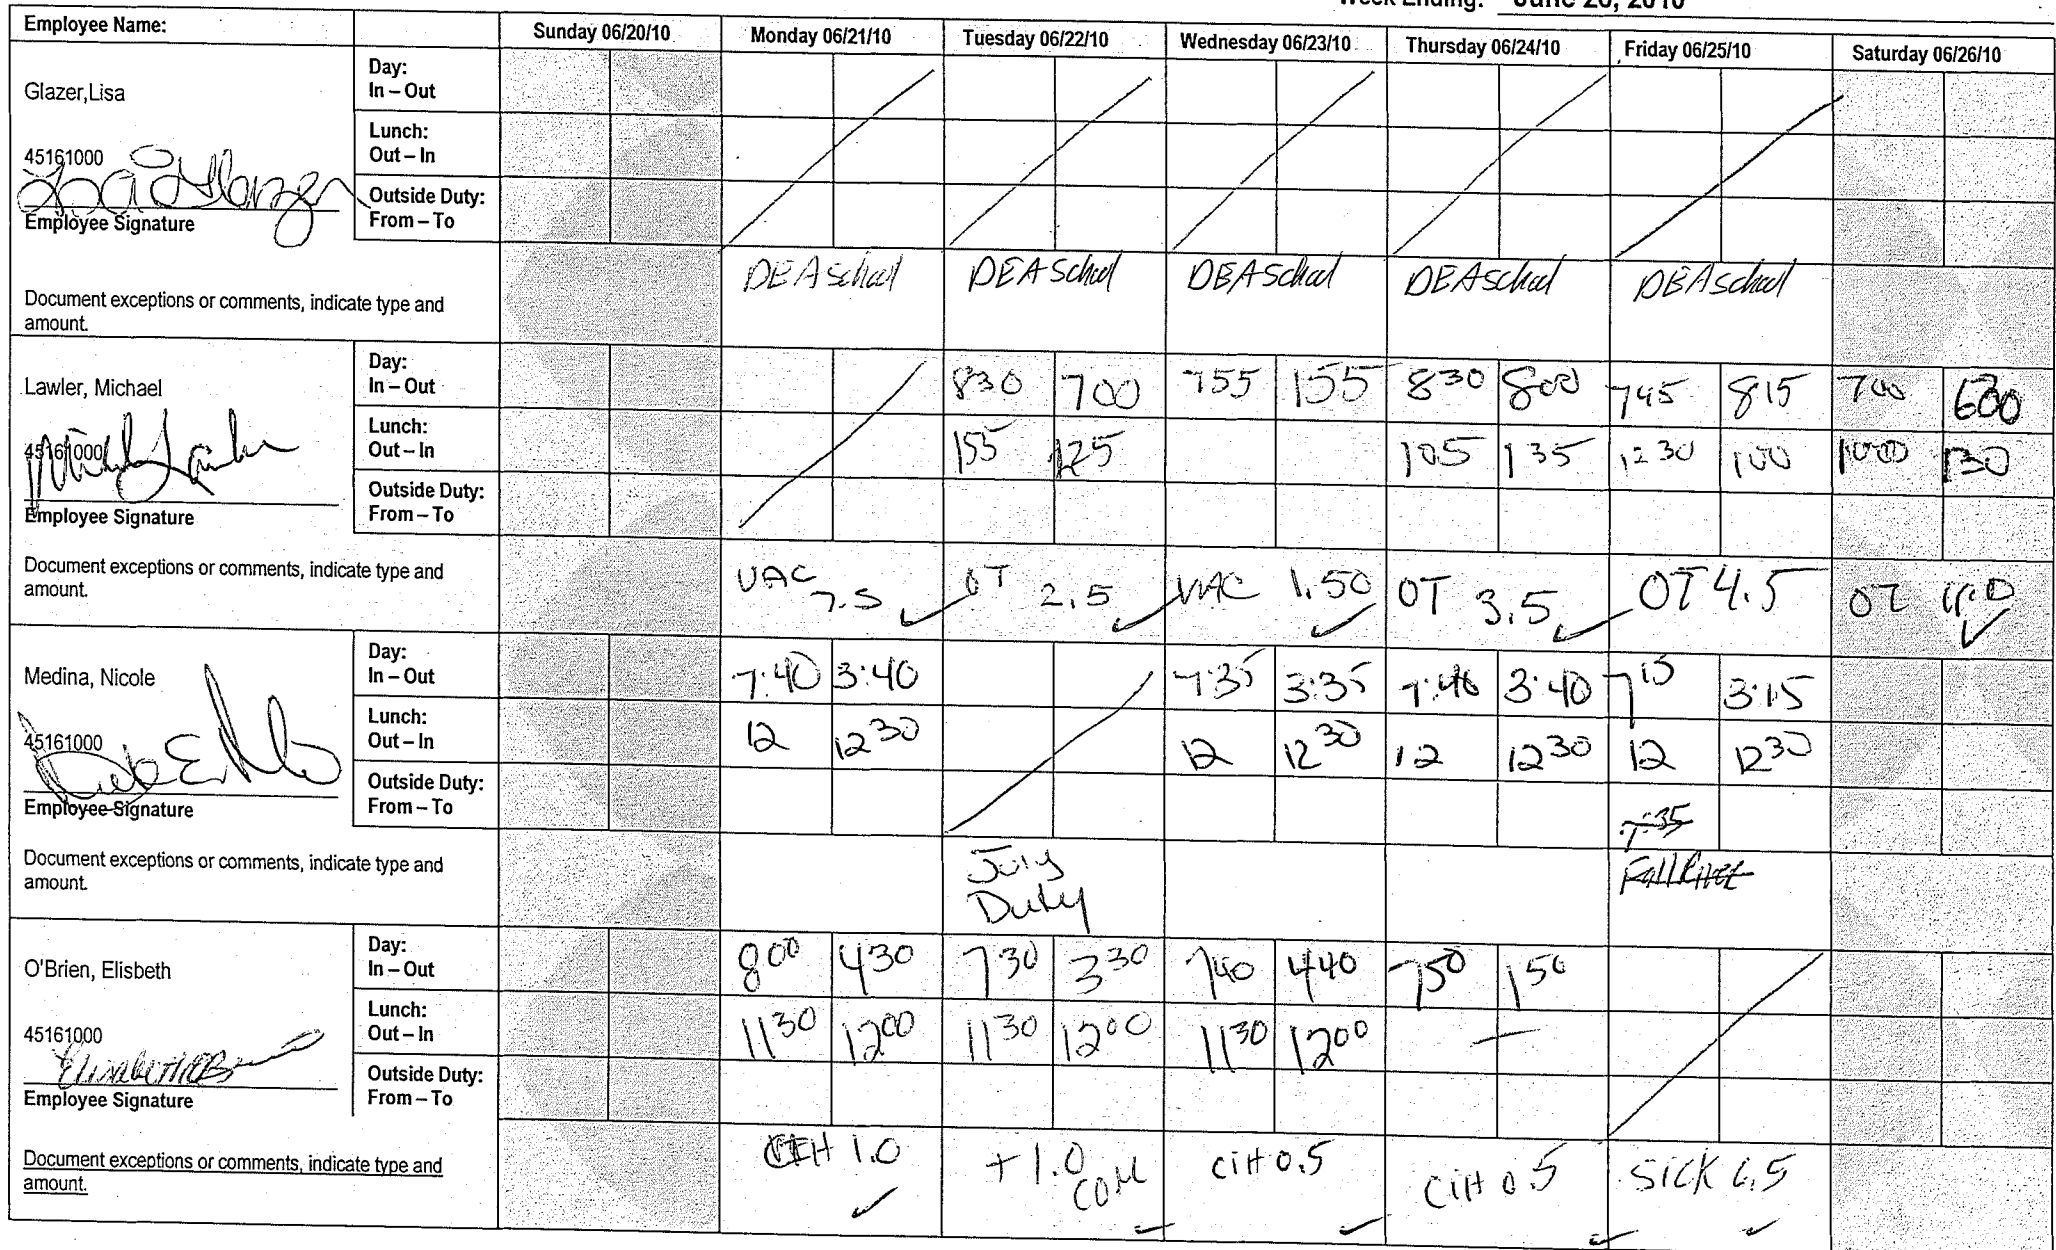 Week Ending: June 26, 2010
Employee Name: Sunday 06/20/10 Monday 06/21/10 Tuesday 06/22/10 Wednesday 06/23/10 Thursday 06/24/10 Friday 06/25/10 Saturday 06/26/10
Glazer,Lisa
Day:
In – Out
45161000
Lunch:
Out – In
Lisa Glazer
Employee Signature
Outside Duty:
From – To
DEA School DEA School DEA School DEA School DEA School
Document exceptions or comments, indicate type and
amount.
Lawler, Michael
Day:
In – Out 830 700 755 155 830 800 745 815 700 600
45161000
Lunch:
Out – In 155 125 105 135 1230 100 1000 130
Employee Signature
Outside Duty:
From – To
Document exceptions or comments, indicate type and
amount.
VAC 7.5 OT 2.5 VAC 1.50 OT 3.5 OT 4.5 OT
Medina, Nicole
Day:
In – Out 7:40 3:40 7:35 3:35 7:40 3:40 7 15 3:15
45161000
Lunch:
Out – In 12 12 30 12 12 30 12 12 30 12 12 30
Employee Signature
Outside Duty:
From – To 7:35
Document exceptions or comments, indicate type and
amount.
Jury
Duty
Fall River
O'Brien, Elisbeth
Day:
In – Out 8 00 4 30 7 30 3 30 7 40 4 40 7 50 1 50
45161000
Lunch:
Out – In 11 30 12 00 11 30 12 00 11 30 12 00 —
Employee Signature
Outside Duty:
From – To
Document exceptions or comments, indicate type and
amount.
CIH 1.0 +1.0 COM CIH 0.5 CIH 0.5 SICK 6.5